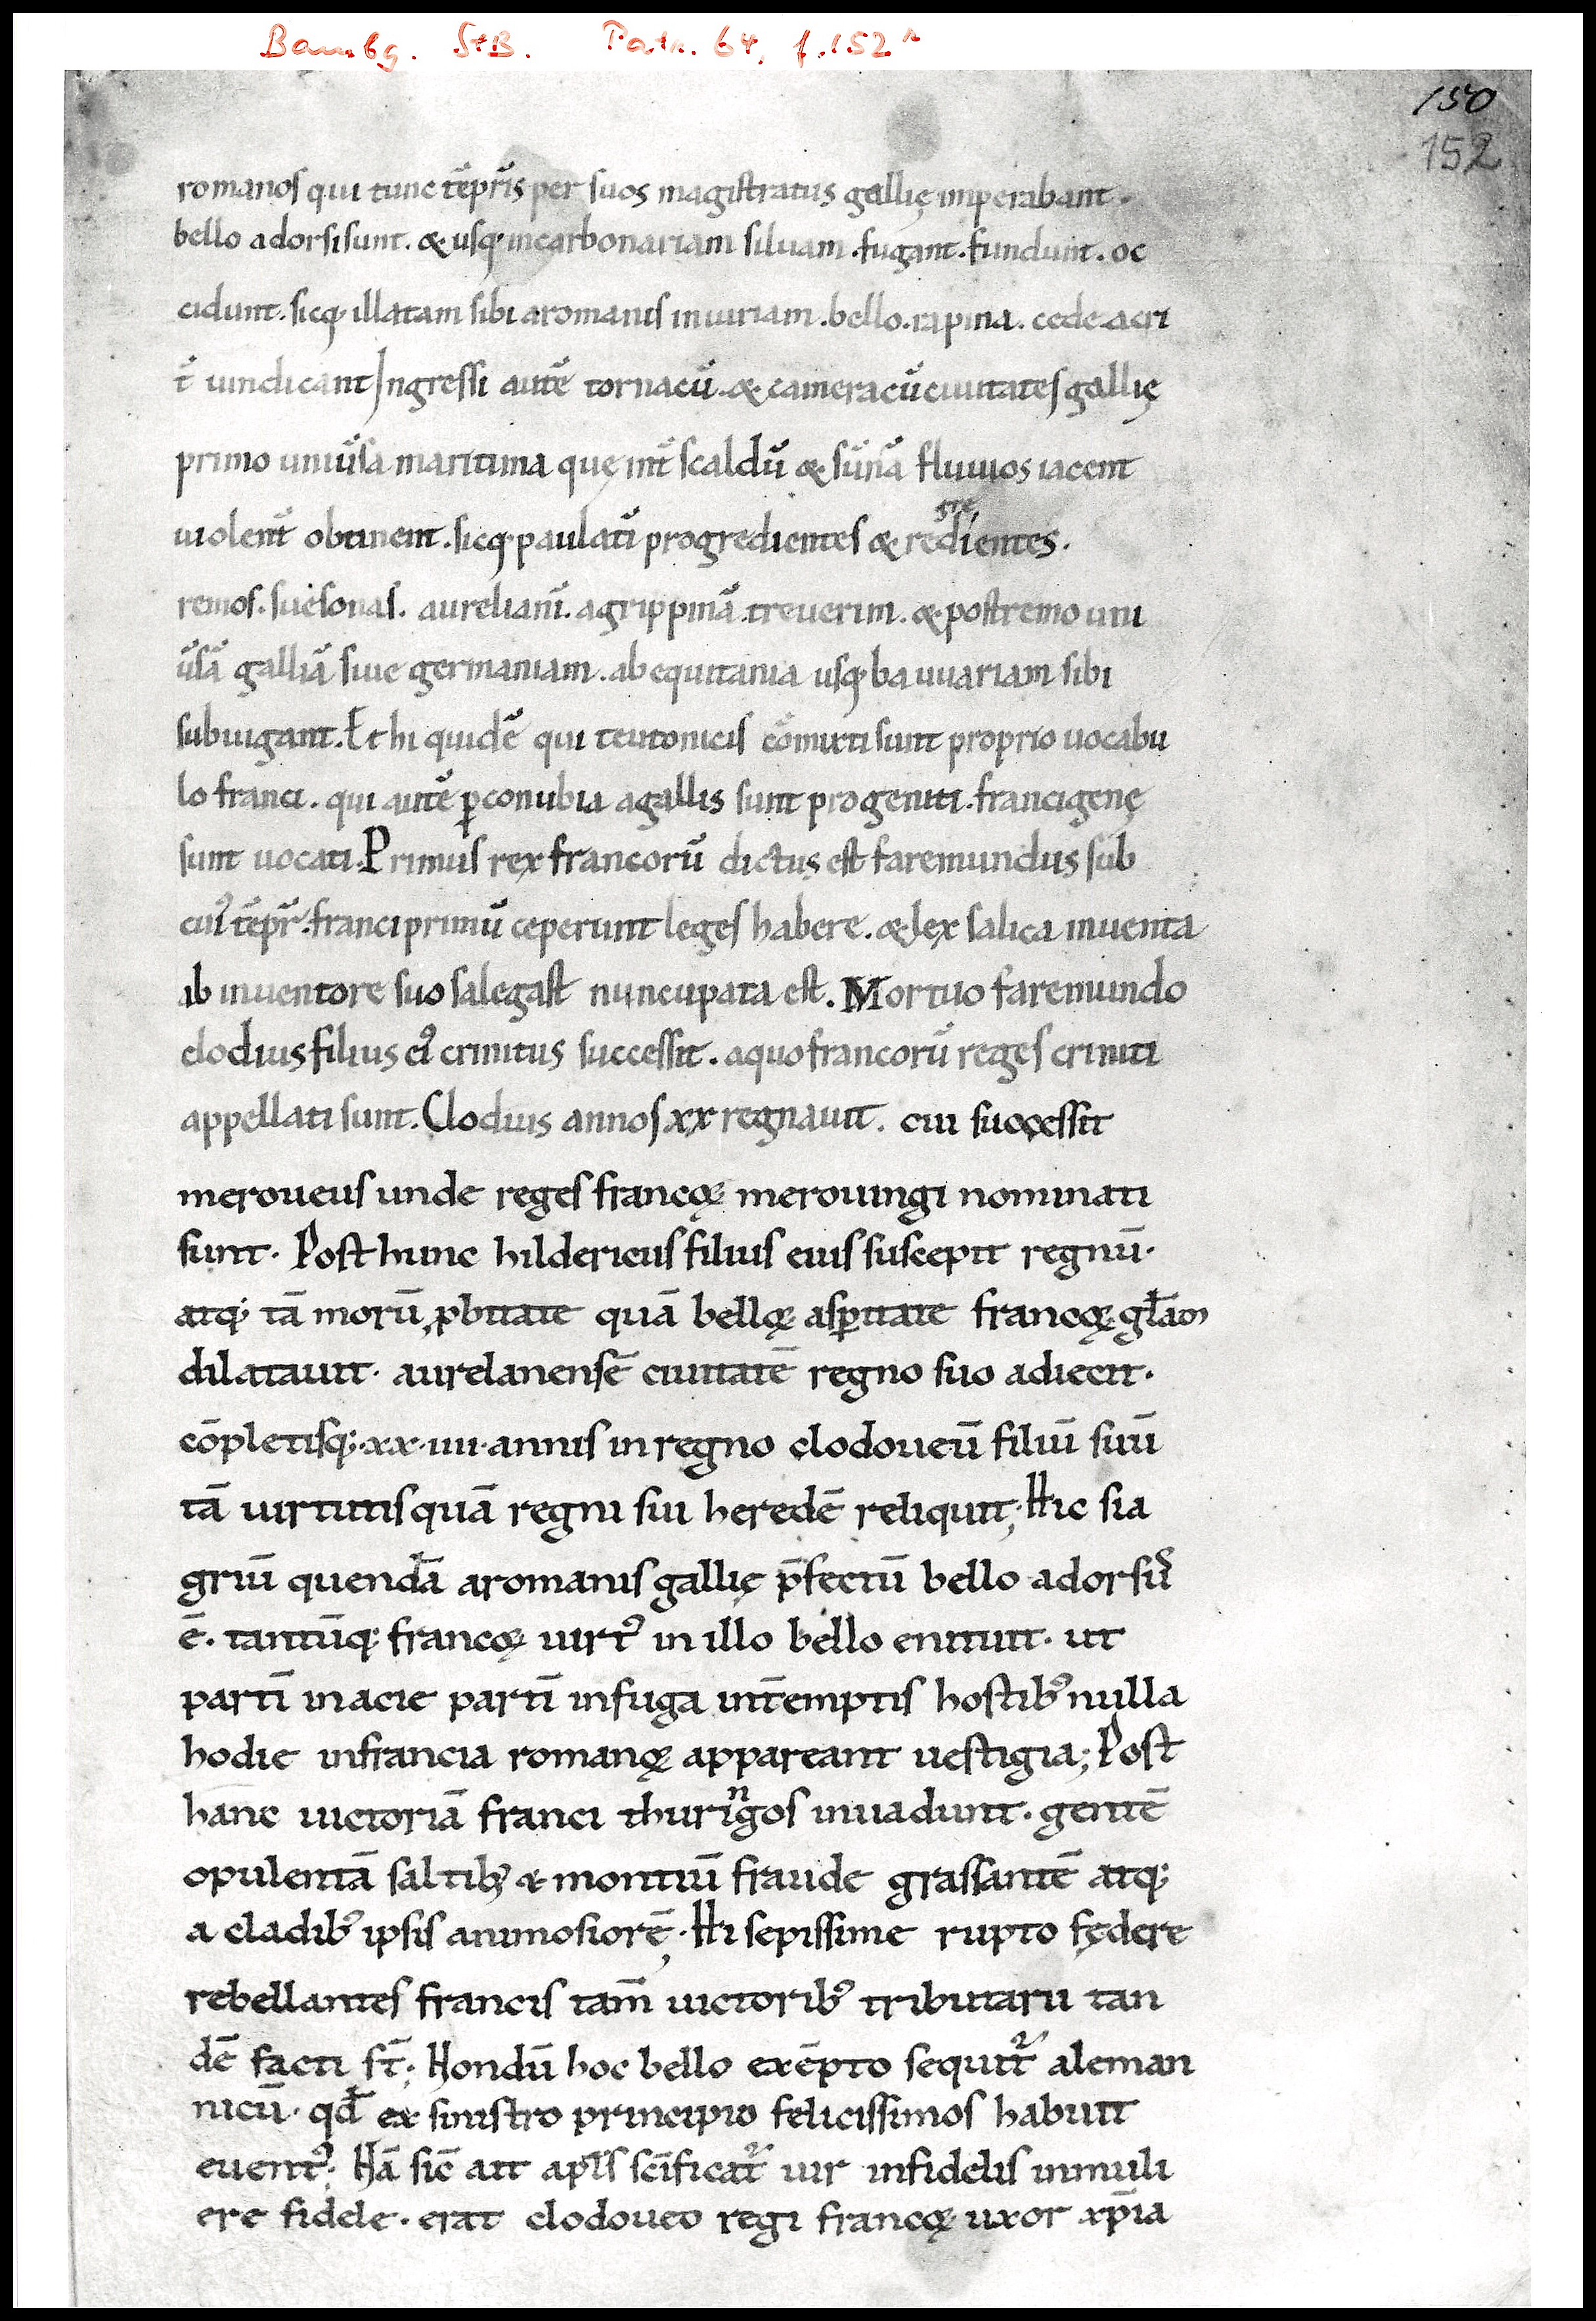 Bambg. StB. Patr. 64, f. 152r
150
152
romanos qui tunc tēpr̄is per suos magistratus gallię imperabant.
bello adorsi sunt. & usq; incarbonariam siluam. fugant. fundunt. oc
cidunt. sicq; illatam sibi aromanis iniuriam. bello. rapina. cede acri
t̄ uindicant Ingressi autē tornacū. & cameracū ciuitates gallię
primo uniūsa maritima quę int̄ scaldū & sūnā fluuios iacent
uiolent̄ obtinent. sicq; paulatī progredientes & redientes.
gre
remos. suesonas. aurelianī. agrippinā. treuerim. & postremo uni
ūsā galliā siue germaniam. ab equitania usq; bauuariam sibi
subiugant. Et hi quidē qui teutonicis cōmixti sunt proprio uocabu
lo franci. qui autē ꝑconubia agallis sunt progeniti. francigenę
sunt uocati. Primus rex francorū dictus est faremundus sub
cuiꝰ tēpr̄. franci primū ceperunt leges habere. & lex salica inuenta
ab inuentore suo salegast nuncupata est. Mortuo faremundo
clodius filius eiꝰ crinitus successit. aquo francorū reges criniti
appellati sunt. Clodius annos xx regnauit. cui successit
meroueus unde reges francoꝝ merouingi nominati
sunt. Post hunc hildericus filius eius suscepit regnū.
atq; tā morū ꝓbitate quā belloꝝ asꝑitate francoꝝ gl̄am
dilatauit. aurelanensē ciuitatē regno suo adiecit.
cōpletisq; xx. iiii. annis in regno clodoueū filiū suū
tā uirtutis quā regni sui heredē reliquit; Hic sia
griū quendā aromanis gallię p̄fectū bello adorsuꝰ
ē. tantūq; francoꝝ uirtꝰ in illo bello enituit. ut
partī inacie partī infuga int̄emptis hostibꝰ nulla
hodie infrancia romanoꝝ appareant uestigia; Post
hanc uictoriā franci thuringos inuadunt. gentē
opulentā saltibꝰ & montiū fraude grassantē atq;
a cladibꝰ ipsis animosiorē; Hi sepissime rupto fędere
rebellantes francis tam̄ uictoribꝰ tributarii tan
dē facti st̄; Nondū hoc bello exēpto sequit̄ aleman
nicū. qd̄ ex sinistro principio felicissimos habuit
euentꝰ; Nā sic̄ ait apl̄s sc̄ificat̄ uir infidelis inmuli
ere fidele. erat clodoueo regi francoꝝ uxor xp̄ia